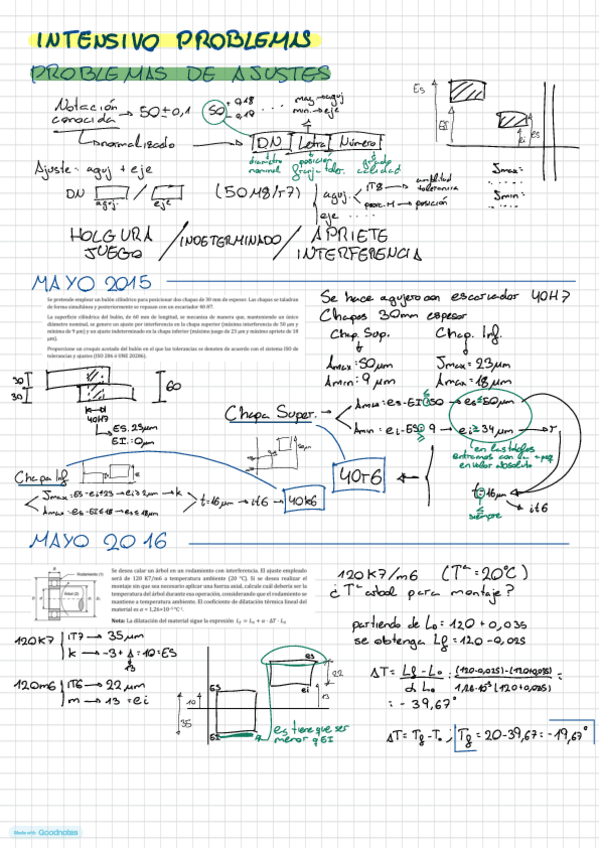 INTENSIVO PROBLEMAS
PROBLEMAS DE AJUSTES
Notación conocida → 50±0,1
50 +0.18 -0.18
max → aguj
min → eje
↳ normalizado → DN Letra Número
diámetro nominal
posición franja toler.
grado calidad
Ajuste: aguj + eje
DN / (50M8/r7)
aguj. eje
aguj. IT8 → amplitud tolerancia
posic. M → posición
eje ....
ES
EI
es
ei
Jmax:
Jmin:
HOLGURA JUEGO / INDETERMINADO / APRIETE INTERFERENCIA
MAYO 2015
Se pretende emplear un bulón cilíndrico para posicionar dos chapas de 30 mm de espesor. Las chapas se taladran
de forma simultánea y posteriormente se repasan con un escariador 40 H7.
La superficie cilíndrica del bulón, de 60 mm de longitud, se mecaniza de manera que, manteniendo un único
diámetro nominal, se genere un ajuste por interferencia en la chapa superior (máxima interferencia de 50 μm y
mínima de 9 μm) y un ajuste indeterminado en la chapa inferior (máximo juego de 23 μm y máximo apriete de 18
μm).
Proporcione un croquis acotado del bulón en el que las tolerancias se denoten de acuerdo con el sistema ISO de
tolerancias y ajustes (ISO 286 ó UNE 20286).
Se hace agujero con escariador 40H7
Chapas 30mm espesor
Chap. Sup. Chap. Inf.
Amax: 50μm Jmax: 23μm
Amin: 9 μm Amax: 18μm
30
30
60
40H7
ES: 25μm
EI: 0μm
Chapa Super.
Amax = es-EI ≤ 50 → es ≤ 50μm
Amin = ei-ES ≥ 9 → ei ≥ 34μm → r
en las tablas entramos con en valor absoluto
t ≤ 16μm
↳ it6
siempre
40r6
Chapa Inf
Jmax: ES-ei ≤ 23 → ei ≥ 2μm → k
Amax: es-EI ≤ 18 → es ≤ 18μm
t = 16μm → it6 → 40k6
MAYO 2016
Rodamiento (1)
Árbol (2)
Se desea calar un árbol en un rodamiento con interferencia. El ajuste empleado
será de 120 K7/m6 a temperatura ambiente (20 °C). Si se desea realizar el
montaje sin que sea necesario aplicar una fuerza axial, calcule cuál debería ser la
temperatura del árbol durante esa operación, considerando que el rodamiento se
mantiene a temperatura ambiente. El coeficiente de dilatación térmica lineal del
material es α = 1,26×10⁻⁵ °C⁻¹.
Nota: La dilatación del material sigue la expresión L_f = L₀ + α · ΔT · L₀
120K7/m6 (Tª = 20°C)
¿Tª arbol para montaje?
partiendo de L₀: 120 + 0,035
se obtenga Lf = 120 - 0,025
120K7 | IT7 → 35μm
k → -3+Δ = 10 = ES
13
120m6 | IT6 → 22μm
m → 13 = ei
ES
EI
es
ei
10
35
22
13
es tiene que ser menor q EI
ΔT = (Lf - L₀)/(α L₀) = ((120-0,025)-(120+0,035))/(1,26·10⁻⁵(120+0,035)) =
= -39,67°
ΔT = Tf - T₀ ; Tf = 20-39,67 = -19,67°
Made with Goodnotes